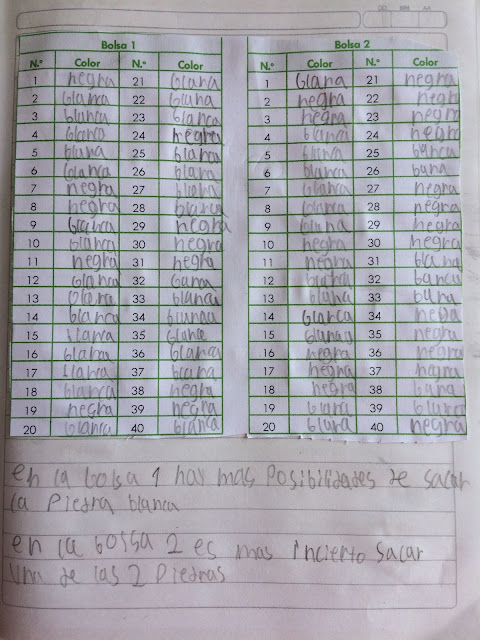 Bolsa 1
N.° Color N.° Color
1 negra 21 blana
2 blanra 22 bluna
3 blanca 23 blanca
4 blanco 24 negra
5 bluna 25 blanca
6 blanca 26 blara
7 negra 27
8 negra 28 blanca
9 blanca 29 negra
10 blanca 30 negra
11 negra 31 negra
12 blana 32 bana
13 blana 33 blanca
14 blanca 34
15 35 blanca
16 blara 36 blanca
17 37 blana
18 blanca 38 negra
19 negra 39 negra
20 blanca 40 blanca
Bolsa 2
N.° Color N.° Color
1 blana 21 negra
2 negra 22 negra
3 negra 23 negra
4 blanca 24 negra
5 25 banca
6 blanca 26 bana
7 blanca 27 negra
8 blanca 28 negra
9 bluna 29 negra
10 negra 30 negra
11 negra 31 blana
12 blanca 32 banca
13 blana 33 buna
14 blanca 34 negra
15 35 negra
16 negra 36 negra
17 negra 37 negra
18 negra 38 bana
19 blara 39 blanca
20 blura 40 negra
en la bolsa 1 hay mas Posibilidades de sacar
la Piedra blanca
en la bolsa 2 es mas incierto sacar
una de las 2 Piedras